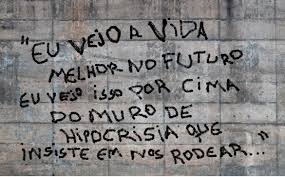 "EU VEJO A VIDA
MELHOR NO FUTURO
EU VEJO ISSO POR CIMA
DO MURO DE
HIPOCRISIA QUE
INSISTE EM NOS RODEAR..."